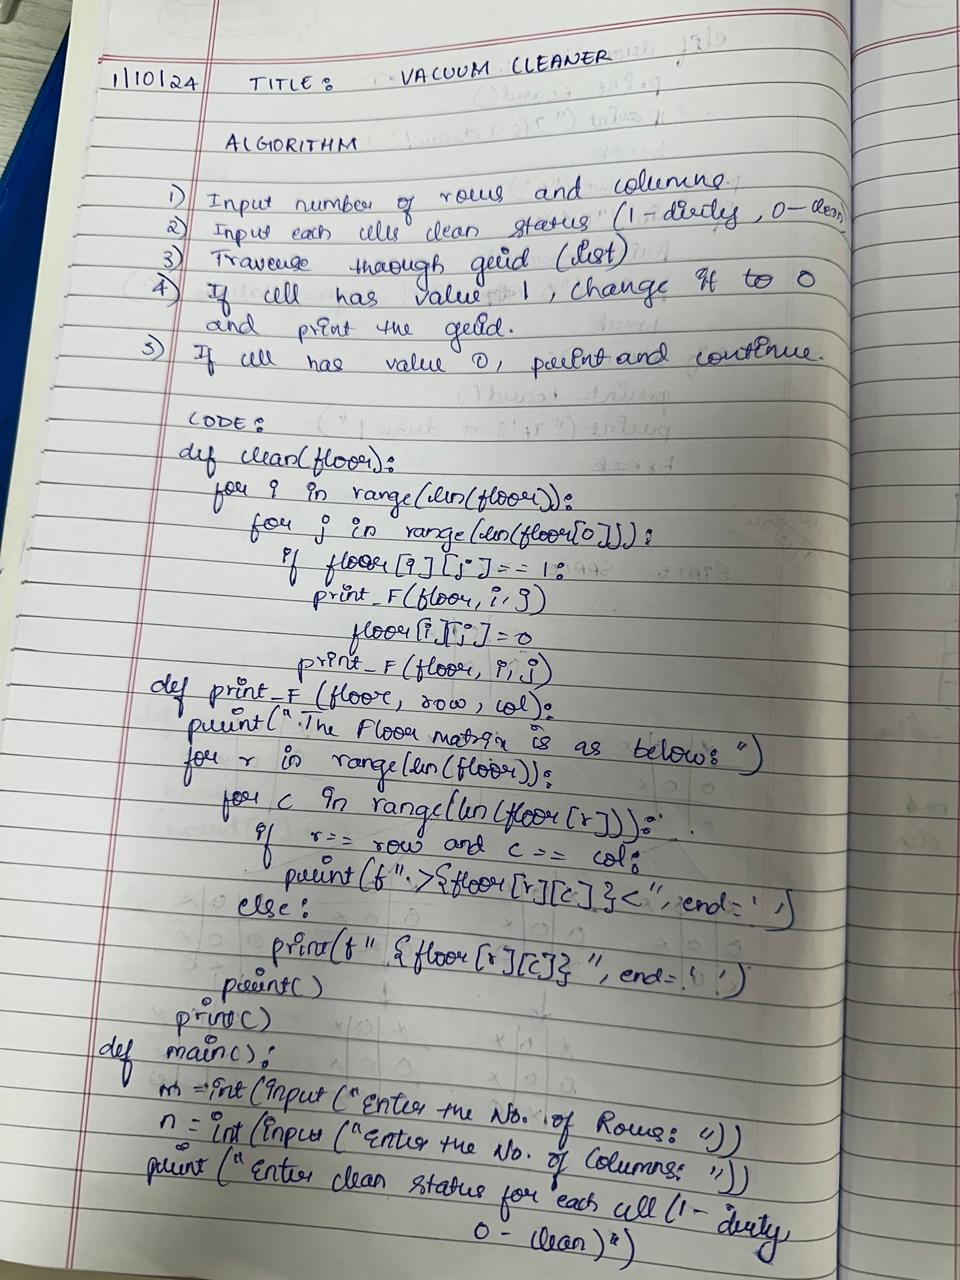 1/10/24 TITLE: VACUUM CLEANER
ALGORITHM
1) Input number of rows and columns.
2) Input each cells clean status (1 - dirty, 0 - clean)
3) Traverse through grid (list)
4) If cell has value 1, change it to 0
and print the grid.
5) If cell has value 0, print and continue.
CODE:
def clean(floor):
for i in range(len(floor)):
for j in range(len(floor[0])):
if floor[i][j] == 1:
print_F(floor, i, j)
floor[i][j] = 0
print_F(floor, i, j)
def print_F (floor, row, col):
print(" The Floor matrix is as below: ")
for r in range(len(floor)):
for c in range(len(floor[r])):
if r == row and c == col:
print(f" >{floor[r][c]}<", end=' ')
else:
print(f" {floor[r][c]} ", end=' ')
print()
print()
def main():
m = int(input("Enter the No. of Rows: "))
n = int(input("Enter the No. of Columns: "))
print ("Enter clean status for each cell (1 - dirty,
0 - clean)")